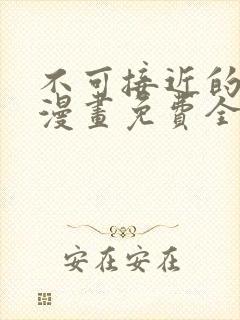 不可接近的
漫畫免費全
安在安在